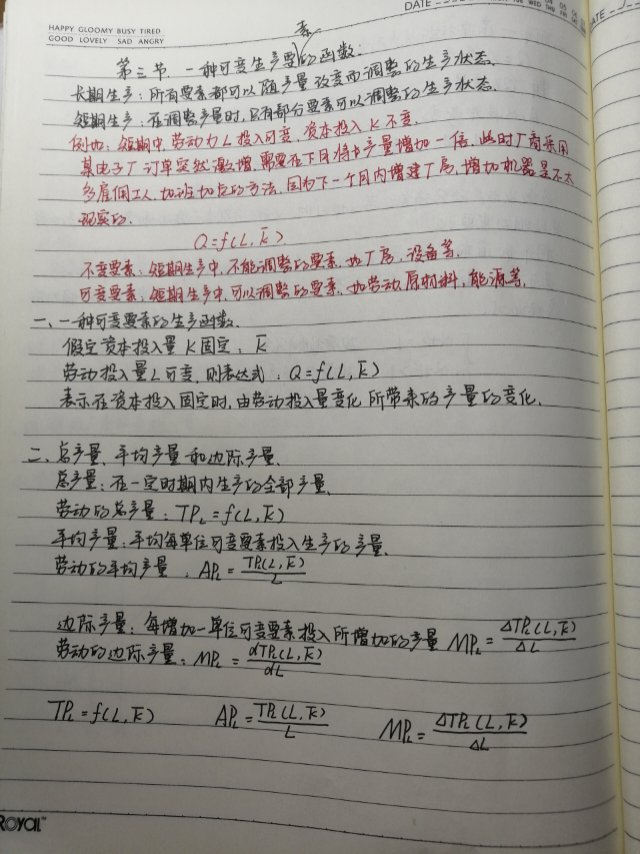 HAPPY GLOOMY BUSY TIRED
GOOD LOVELY SAD ANGRY
DATE
第三节、一种可变生产要素的函数:
长期生产:所有要素都可以随产量改变而调整的生产状态.
短期生产:在调整产量时,只有部分要素可以调整的生产状态.
例如:短期中,劳动力L投入可变,资本投入K不变.
某电子厂订单突然激增,需要在下月将产量增加一倍,此时厂商采用
多雇佣工人,加班加点的方法,因为下一个月内增建厂房,增加机器是不太
现实的.
Q=f(L,K̄)
不变要素:短期生产中,不能调整的要素.如厂房,设备等.
可变要素:短期生产中,可以调整的要素.如劳动,原材料,能源等.
一、一种可变要素的生产函数.
假定资本投入量K固定:K̄
劳动投入量L可变,则表达式:Q=f(L,K̄)
表示在资本投入固定时,由劳动投入量变化所带来的产量的变化.
二、总产量、平均产量和边际产量.
总产量:在一定时期内生产的全部产量.
劳动的总产量:TPL=f(L,K̄)
平均产量:平均每单位可变要素投入生产的产量.
劳动的平均产量:APL=TPL(L,K̄)/L
边际产量:每增加一单位可变要素投入所增加的产量 MPL=ΔTPL(L,K̄)/ΔL
劳动的边际产量:MPL=dTPL(L,K̄)/dL
TPL=f(L,K̄) APL=TPL(L,K̄)/L MPL=ΔTPL(L,K̄)/ΔL
ROYAL